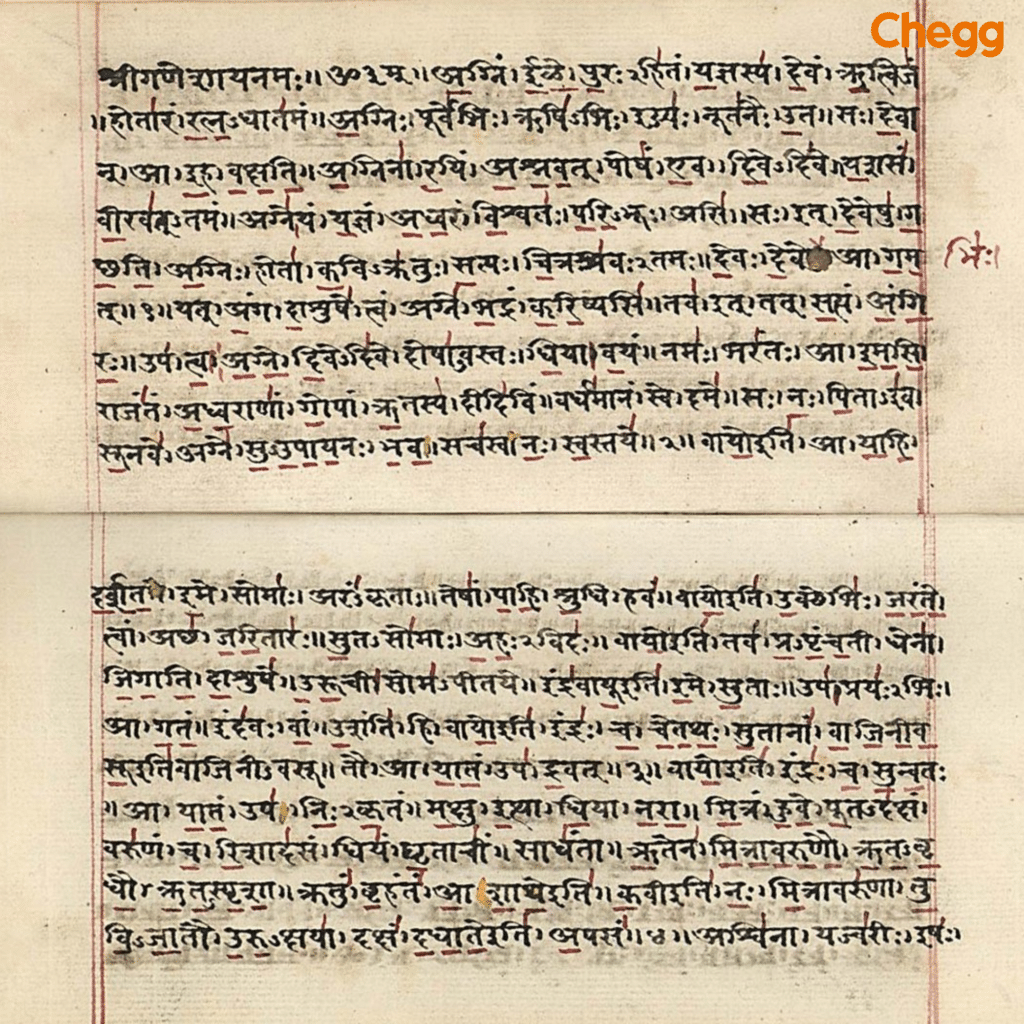 Chegg
श्रीगणेशायनमः॥ ॐ३म्॥ अग्निं। ईळे। पुरः२हितं। यज्ञस्य। देवं। ऋत्विजं
॥होतारं। रत्नऽधातमं॥ अग्निः। पूर्वेभिः। ऋषिऽभिः। ईड्यः। नूतनैः। उत॥ सः। देवा
न्। आ। इह। वक्षति॥ अग्निना। रयिं। अश्नवत्। पोषं। एव। दिवेऽदिवे॥ यशसं।
वीरवत्ऽतमं॥ अग्ने। यं। यज्ञं। अध्वरं। विश्वतः। परिऽभूः। असि॥ सः। इत्। देवेषु। ग
च्छति। अग्निः। होता। कविऽक्रतुः। सत्यः। चित्रश्रवः२तमः॥ देवः। देवे आ। गम
भिः।
त्॥१॥ यत्। अंग। दाशुषे। त्वं। अग्ने। भद्रं। करिष्यसि॥ तव। इत्। तत्। सत्यं। अंगि
रः॥ उप। त्वा। अग्ने। दिवेऽदिवे। दोषाऽवस्तः। धिया। वयं॥ नमः। भरंतः। आ। इमसि।
राजंतं। अध्वराणां। गोपां। ऋतस्य। दीदिविं॥ वर्धमानं। स्वे। दमे॥ सः। नः। पिताऽइव।
सूनवे। अग्ने। सुऽउपायनः। भव। सचस्व। नः। स्वस्तये॥२॥ वायोइति। आ। याहि।
दर्शत। इमे। सोमाः। अरंऽकृताः॥ तेषां। पाहि। श्रुधि। हवं॥ वायोइति। उक्थेभिः। जरंते।
त्वां। अच्छ। जरितारः॥ सुतऽसोमाः। अहः२विदः॥ वायोइति। तव। प्रऽपृंचती। धेना।
जिगाति। दाशुषे॥ उरूची। सोमऽपीतये॥ इंद्रवायूइति। इमे। सुताः॥ उप। प्रयः२भिः।
आ। गतं॥ इंदवः। वां॥ उशंति। हि। वायोइति। इंद्रः। च। चेतथः। सुतानां। वाजिनीव
सूइतिवाजिनीऽवसू॥ तौ। आ। यातं। उप। द्रवत्॥३॥ वायोइति। इंद्रः। च। सुन्वतः
॥ आ। यातं। उप। निः२कृतं॥ मक्षु। इत्था। धिया। नरा॥ मित्रं। हुवे। पूतऽदक्षं।
वरुणं। च। रिशादसं। धियं। घृताचीं॥ साधंता॥ ऋतेन। मित्रावरुणौ। ऋतऽवृ
धौ। ऋतऽस्पृशा॥ क्रतुं। बृहंतं। आशाथेइति॥ कवीइति। नः। मित्रावरुणा। तु
विऽजातौ। उरुऽक्षया। दक्षं। दधातेइति। अपसं॥४॥ अश्विना। यज्वरीः। इषः।